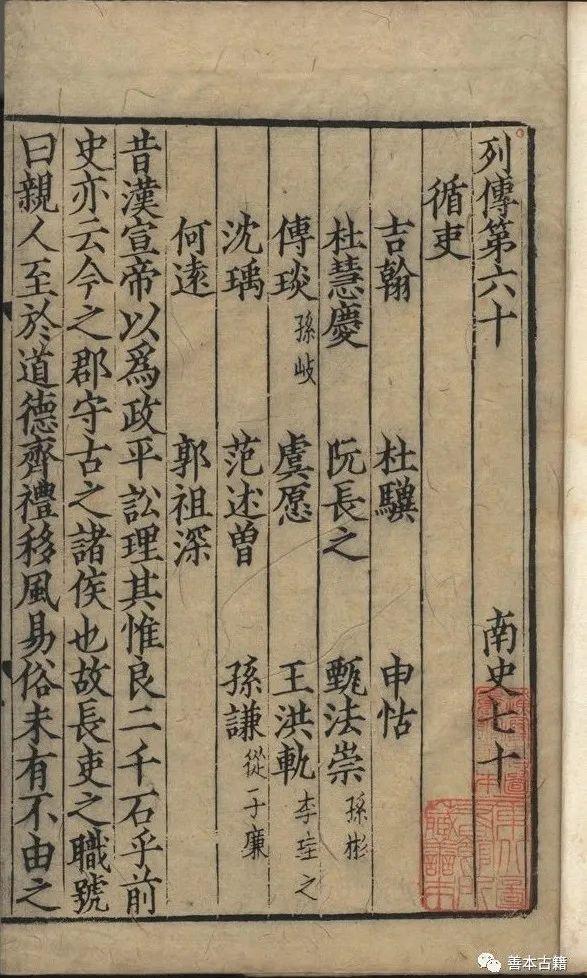 列傳第六十 南史七十
循吏
吉翰 杜驥 申恬
杜慧慶 阮長之 甄法崇 孫彬
傅琰 孫岐 虞愿 王洪軌 李珪之
沈瑀 范述曾 孫謙 從子廉
何遠 郭祖深
昔漢宣帝以爲政平訟理其惟良二千石乎前
史亦云今之郡守古之諸侯也故長吏之職號
曰親人至於道德齊禮移風易俗未有不由之
善本古籍